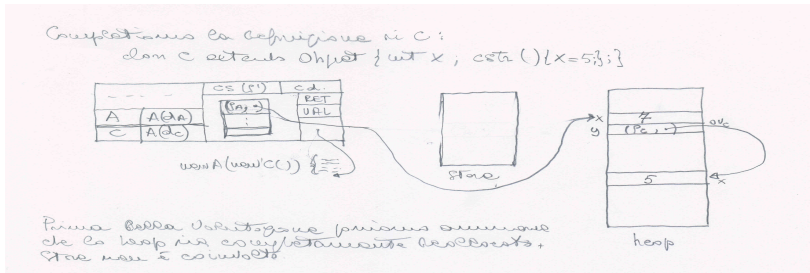 Completiamo la definizione di C:
class C extends Object {int x; cstr(){x=5;};}
CS (ρ') Cd.
- - - - (ρA, •) RET
A A(dA) ⋮ VAL
C A(dC)
new A(new C()) {
Store
x 4
y (ρC, •) OVC
5 x
heap
Prima della valutazione possiamo
che lo heap sia completamente deallocato,
store non è coinvolto